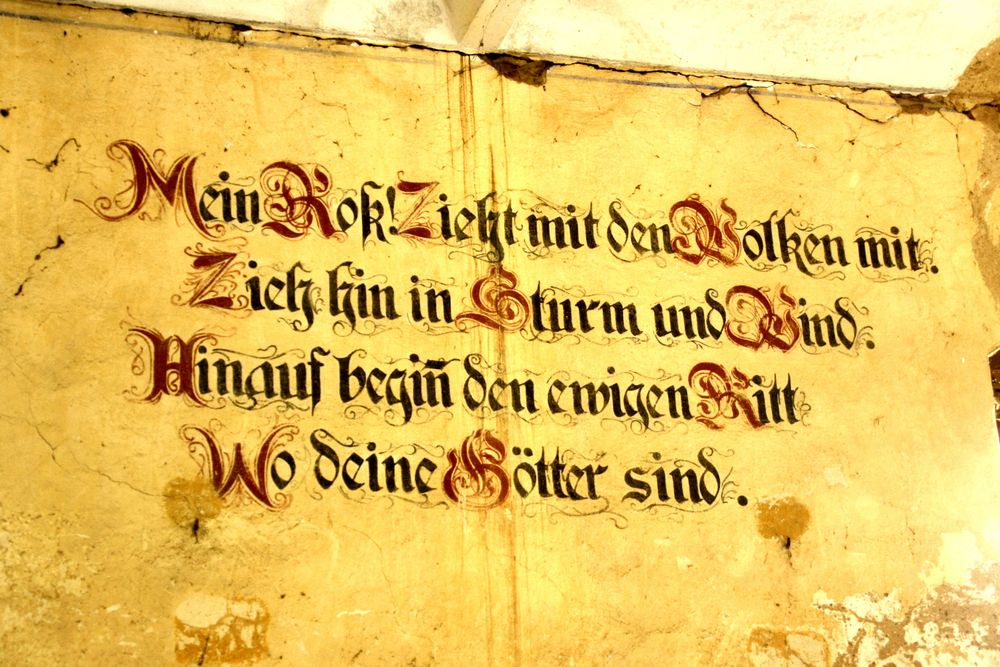 Mein Roß! Zieht mit den Wolken mit.
Zieh hin in Sturm und Wind.
Hinauf begin̄ den ewigen Ritt
Wo deine Götter sind.